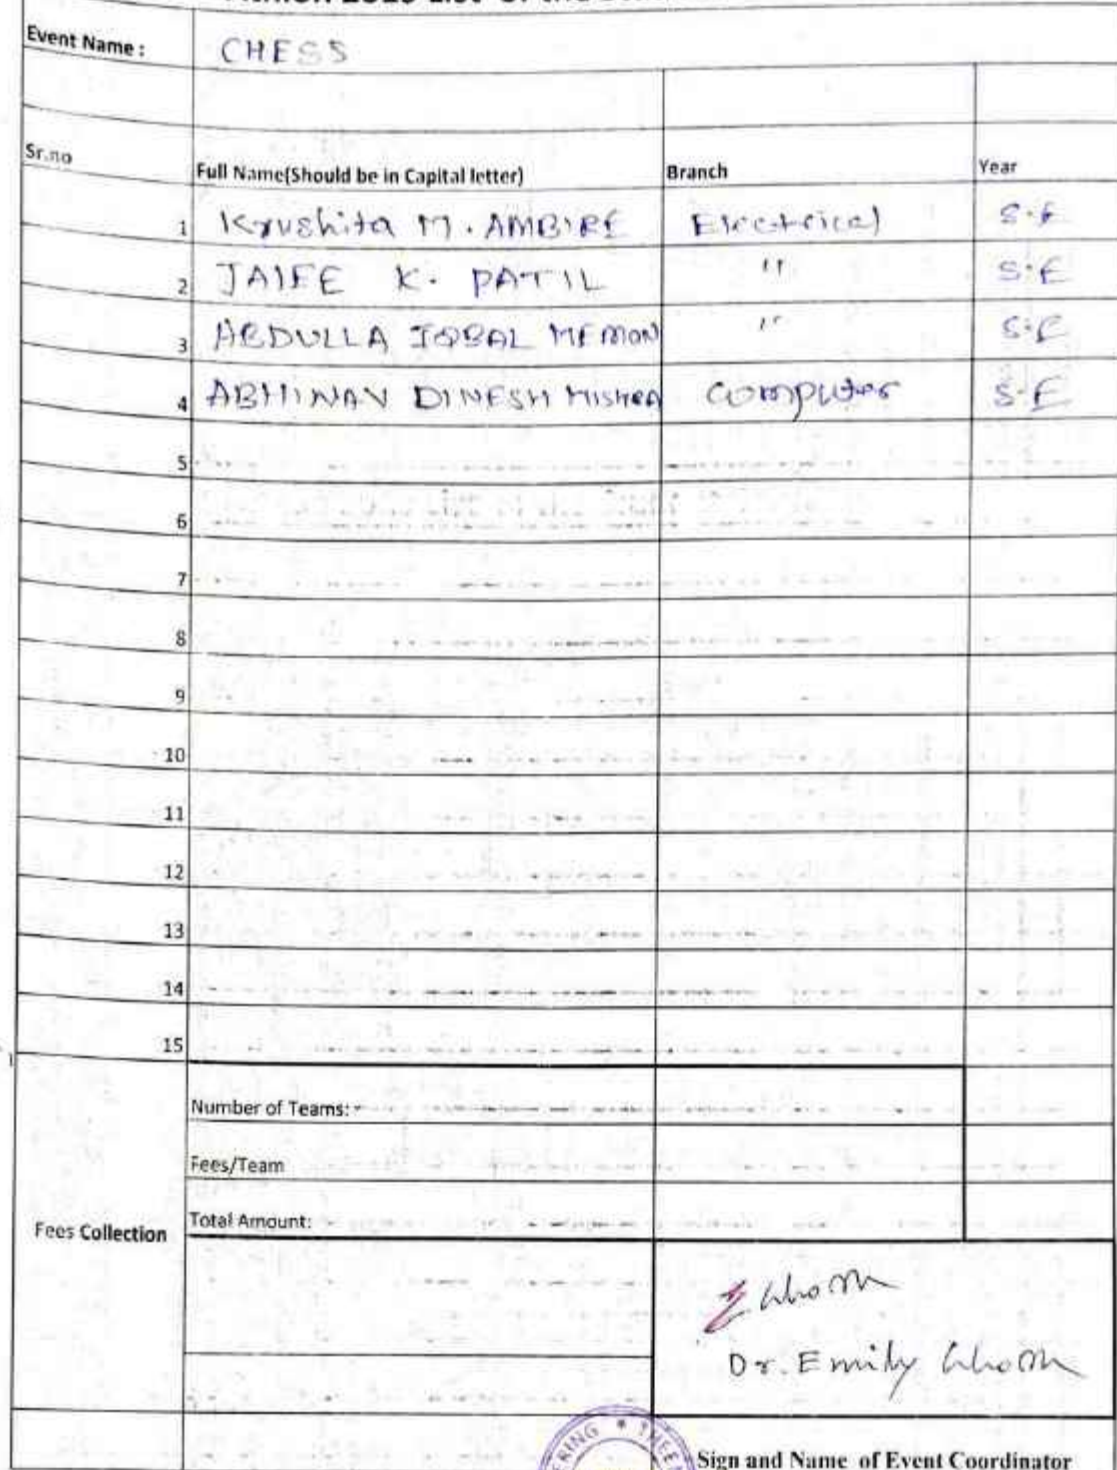 2019 List of the
Event Name : CHESS
Sr.no Full Name(Should be in Capital letter) Branch Year
1 Krushita M. AMBIRE Electrical S.E
2 JAIFE K. PATIL " S.E
3 ABDULLA IQBAL MEMON " S.E
4 ABHINAV DINESH MISHRA Computer S.E
5
6
7
8
9
10
11
12
13
14
15
Number of Teams:
Fees/Team
Total Amount:
Fees Collection
Dr. Emily Ghosh
Sign and Name of Event Coordinator